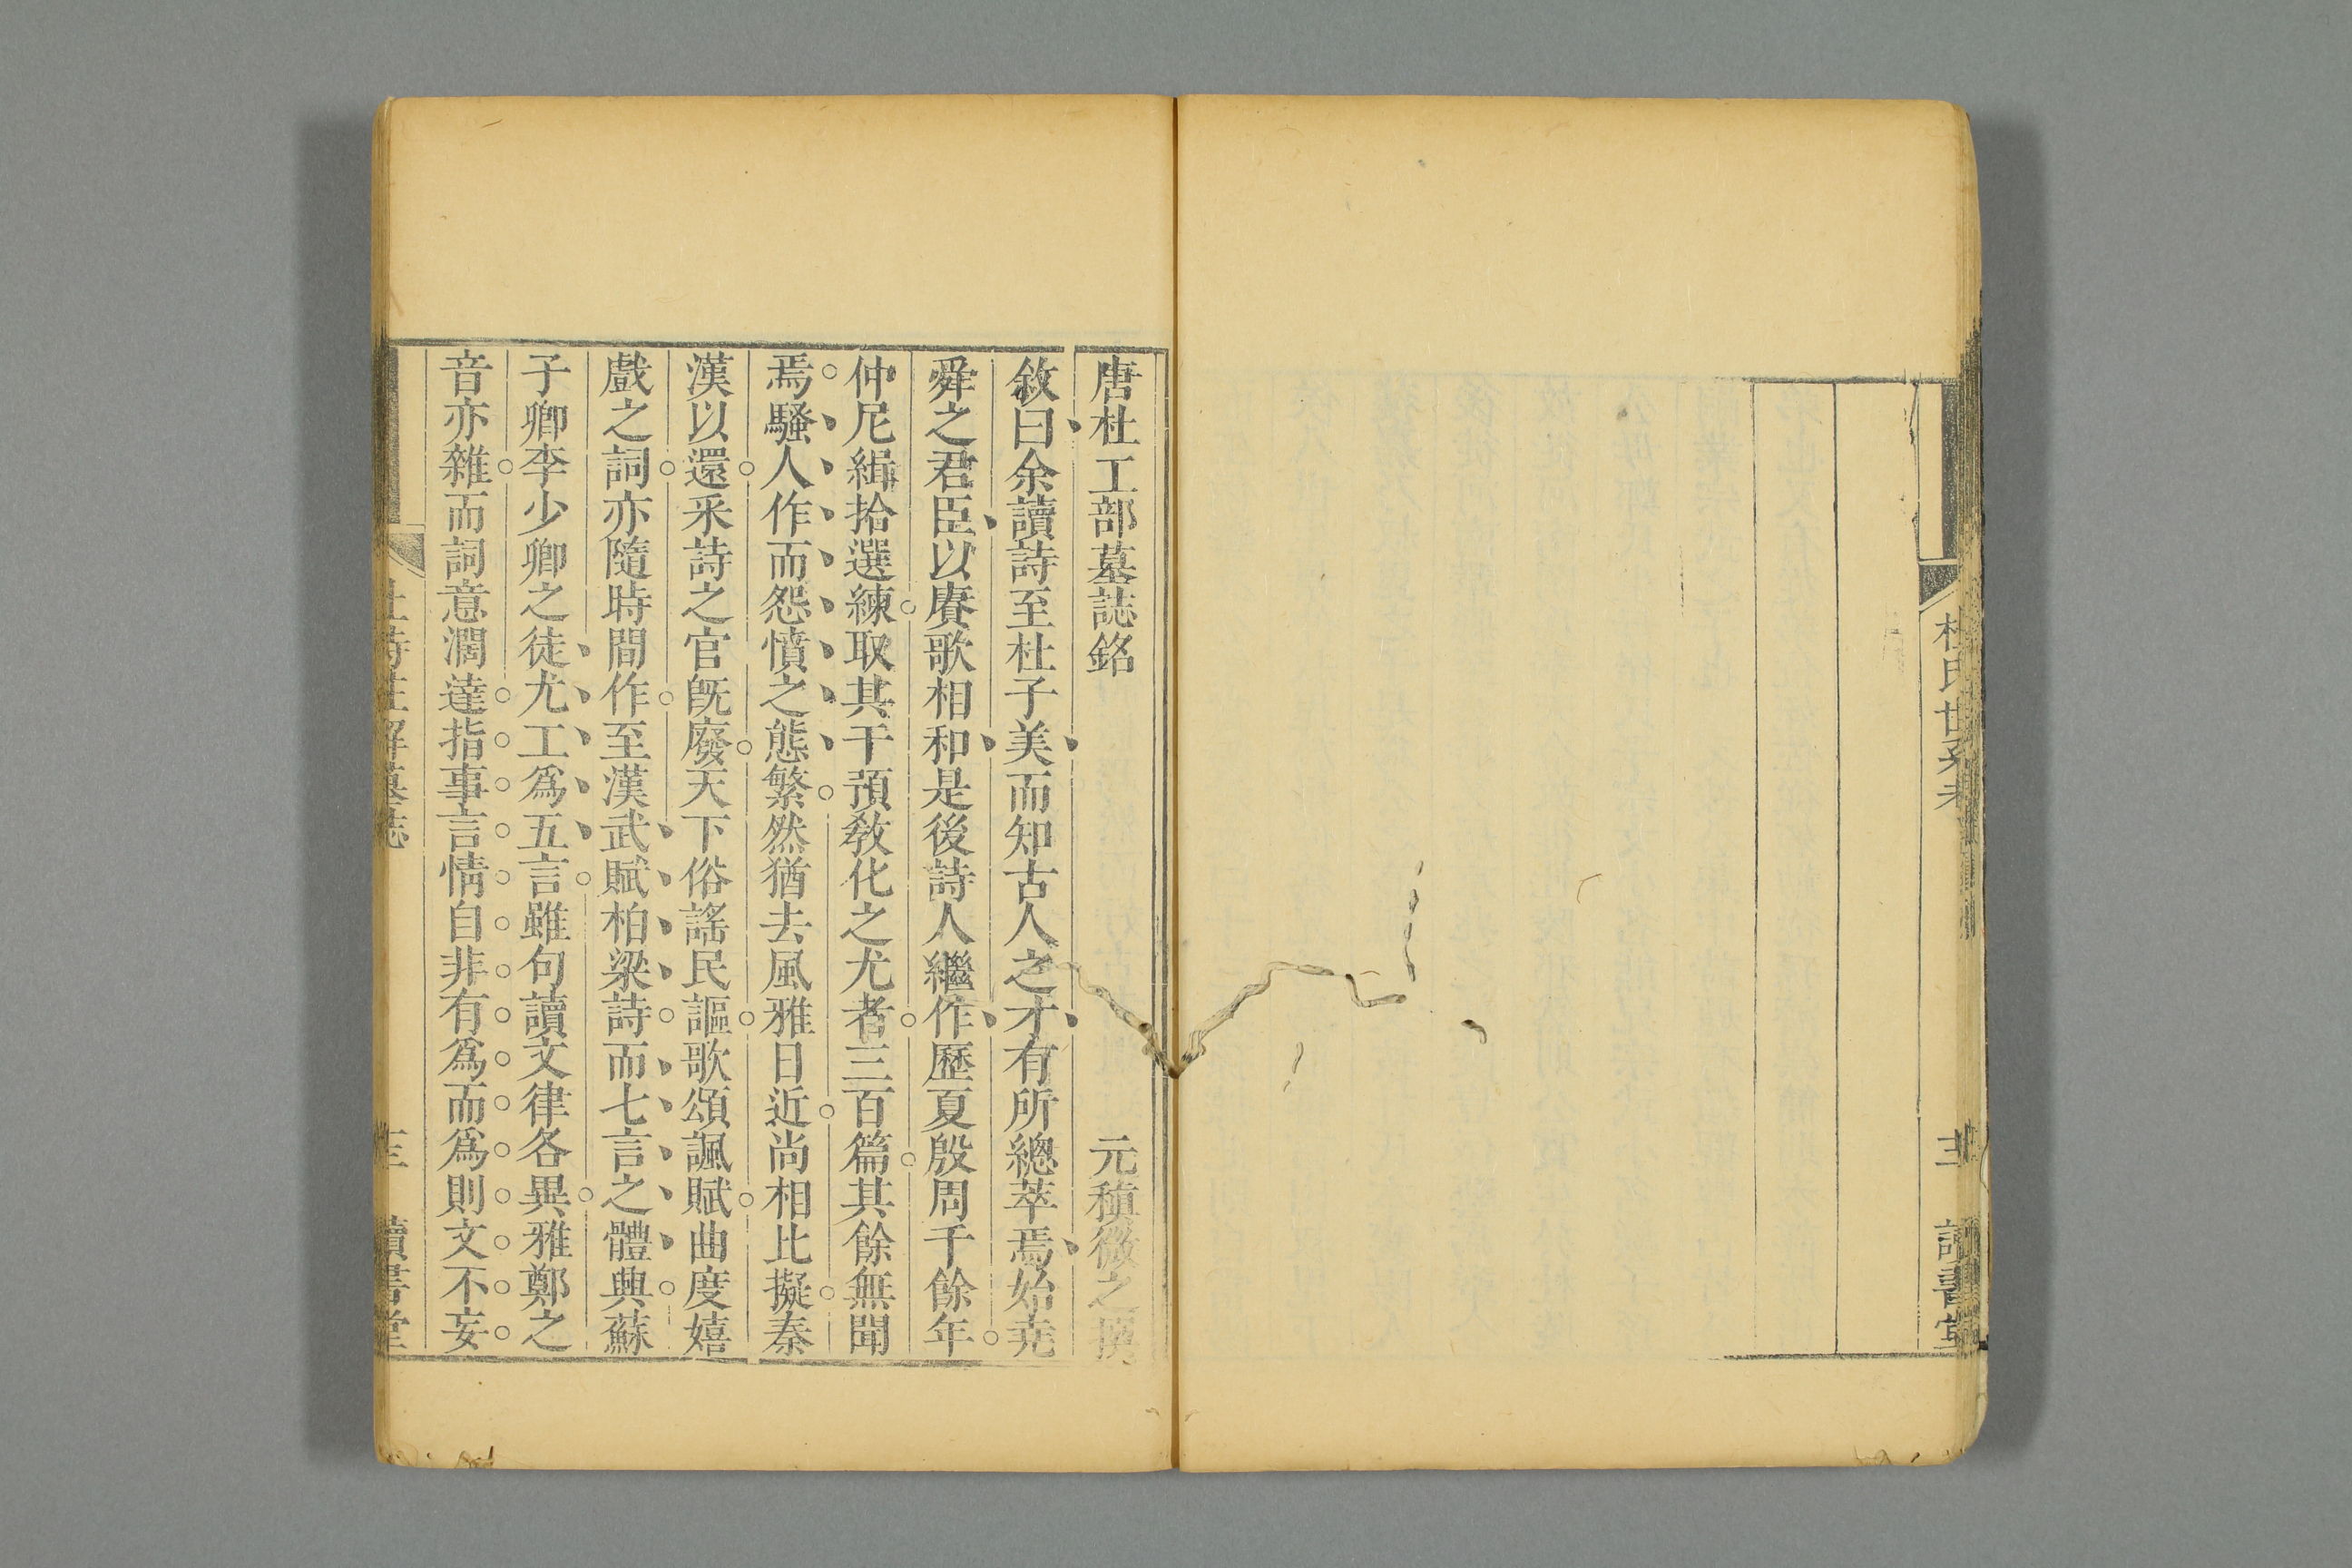 杜氏世系考
讀書堂
唐杜工部墓誌銘 元稹微之撰
敘曰余讀詩至杜子美而知古人之才有所總萃焉始堯
舜之君臣以賡歌相和是後詩人繼作歷夏殷周千餘年
仲尼緝拾選練取其干預敎化之尤者三百篇其餘無聞
焉騷人作而怨憤之態繁然猶去風雅日近尚相比擬秦
漢以還采詩之官旣廢天下俗謠民謳歌頌諷賦曲度嬉
戲之詞亦隨時間作至漢武賦柏梁詩而七言之體興蘇
子卿李少卿之徒尤工爲五言雖句讀文律各異雅鄭之
音亦雜而詞意濶達指事言情自非有爲而爲則文不妄
杜詩註解墓誌
讀書堂